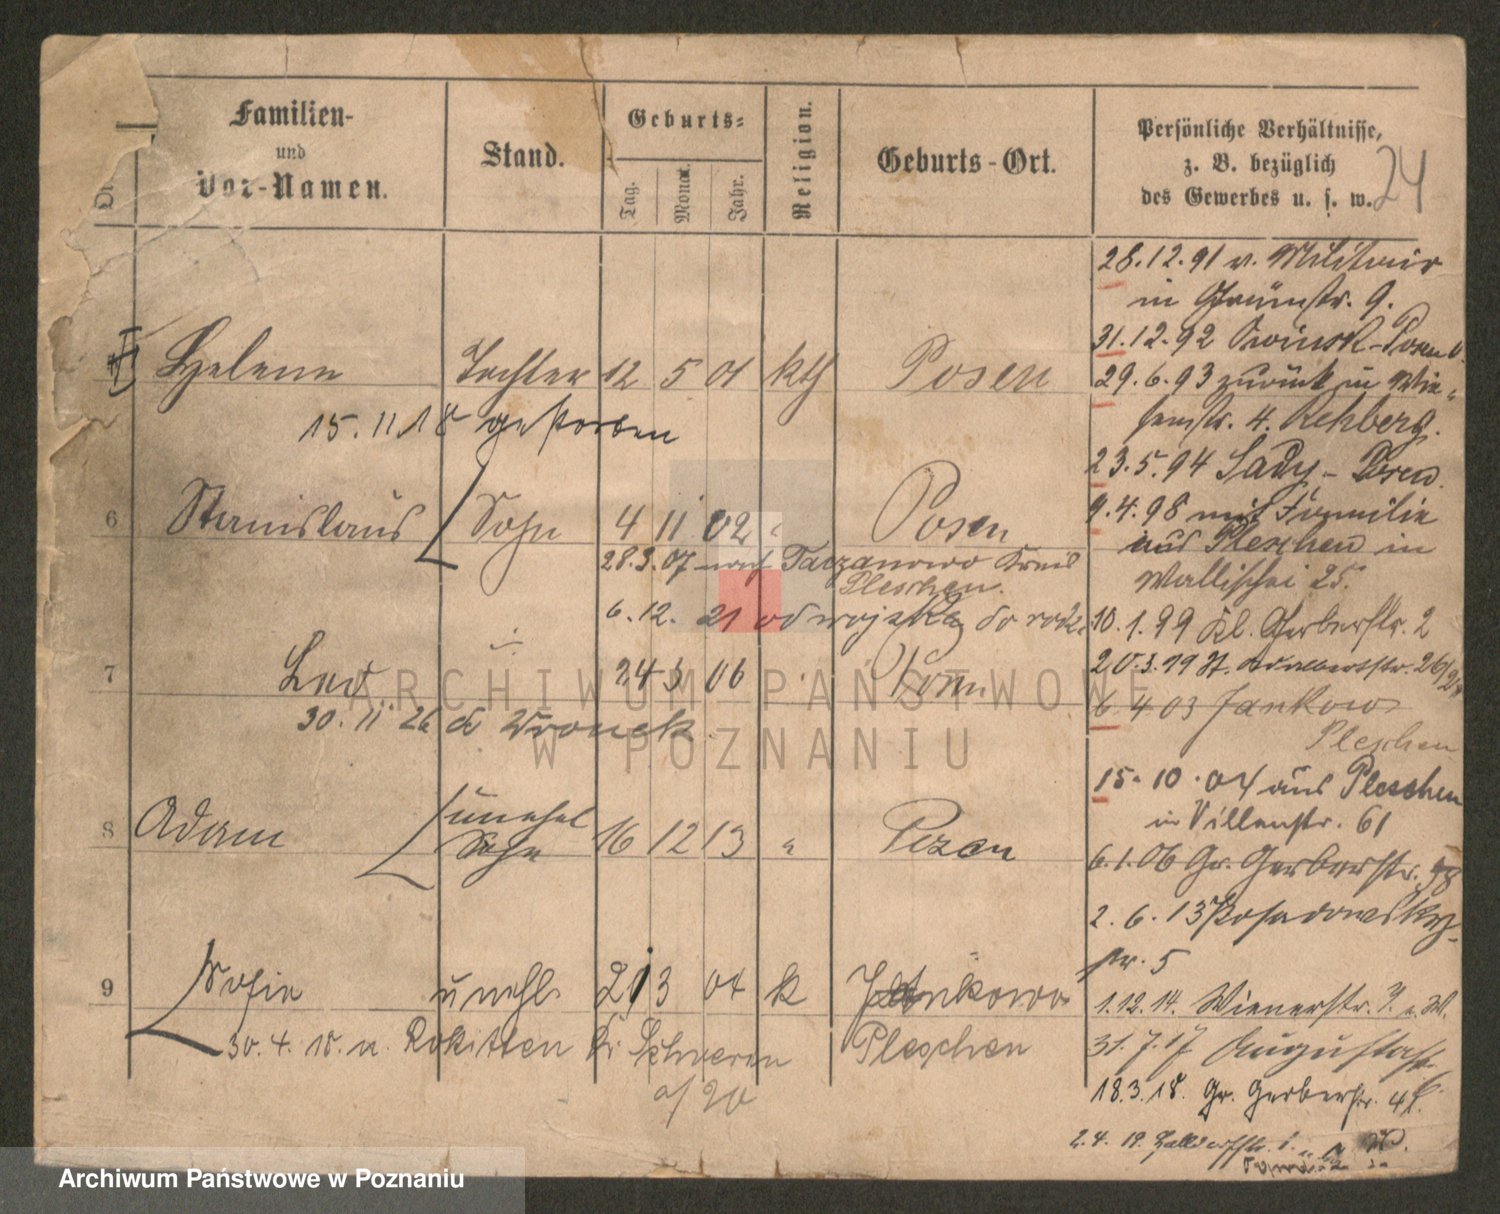 Familien-
und
Vor-Namen.
Stand.
Geburts-
Tag.
Monat.
Jahr.
Religion.
Geburts-Ort.
Persönliche Verhältnisse,
z. B. bezüglich
des Gewerbes u. s. w.
24
Helene Tochter 12 5 01 kth Posen
15.11.18 gestorben
6 Stanislaus Sohn 4 11 02 Posen
28.3.07 nach Taczanowo Kreis
Pleschen.
6.12.21 od wojska do
7 Leo 24 3 06 Posen
30.11 26 do Wronek
8 Adam unehel 16 12 13 " Pozen
Sohn
9 Sofie unehl. 2 3 04 k Jankowo
30.4.18. n. Rokitten Kr. Schwerin Pleschen
a/ 20
28.12.91 v. Militair
in Grünstr. 9.
31.12.92 Owinsk-Posen
29.6.93 zurück in Wie-
senstr. 4. Rehberg.
23.5.94 Sady - Posen.
9.4.98 mit Familie
aus Pleschen in
Wallischei 25.
10.1.99 Kl. Gerberstr. 2
20.3.19 St.
6 4 03 Jankow
Pleschen
15.10.04 aus Pleschen
in Villenstr. 61
6.1.06 Gr. Gerberstr. 38
2.6.13 Posadowsky-
str. 5
1.12.14. Wienerstr.
31.7.17 Augustastr.
18.3.18. Gr. Gerberstr. 41.
2.4.19.
ARCHIWUM PAŃSTWOWE
W POZNANIU
Archiwum Państwowe w Poznaniu